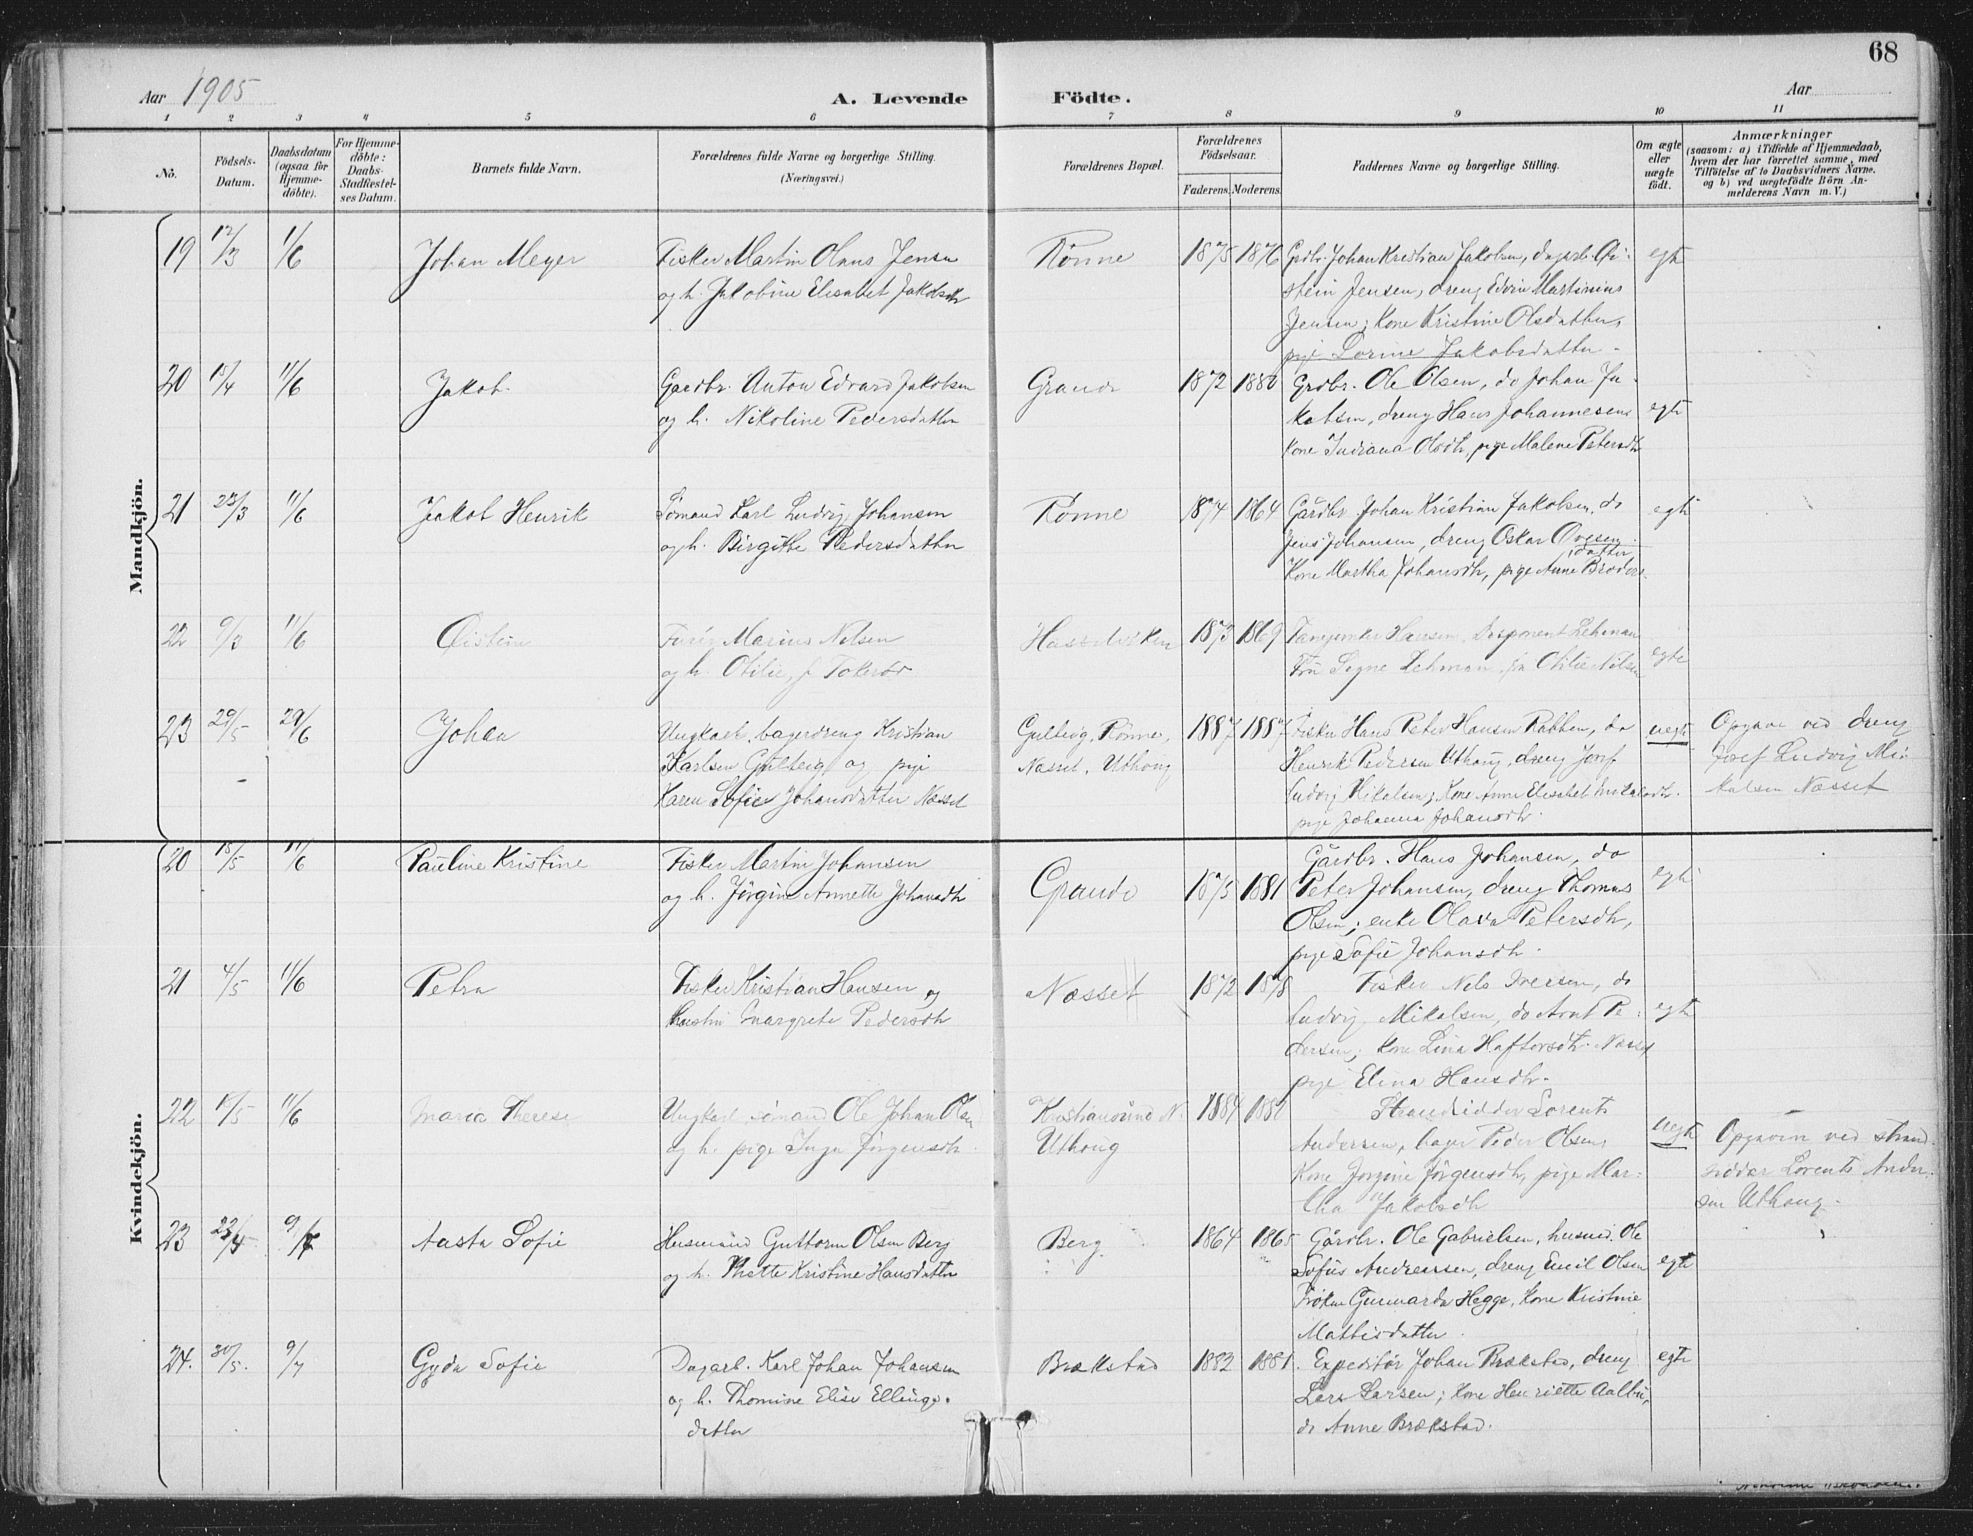 68
Aar 1905
A. Levende Födte.
Aar
1 2 3 4 5 6 7 8 9 10 11
No.
Födsels-
Datum.
Daabsdatum
(ogsaa for
Hjemme-
döbte).
For Hjemme-
döbte:
Daabs-
Stadfæstel-
ses Datum.
Barnets fulde Navn.
Forældrenes fulde Navne og borgerlige Stilling.
(Næringsvei.)
Forældrenes Bopæl.
Forældrenes
Födselsaar.
Faderens. Moderens.
Faddernes Navne og borgerlige Stilling.
Om ægte
eller
uægte
födt.
Anmærkninger
(saasom: a) i Tilfælde af Hjemmedaab,
hvem der har forrettet samme, med
Tilföielse af to Daabsvidners Navne.
og b) ved uægtefödte Börn An-
melderens Navn m. V.)
Mandkjön.
19 12/3 1/6 Johan Meyer
Fisker Martin Olaus Jensen
og h. Jakobine Elisabet Jakobsdtr
Rönne 1875 1876
Grdbr. Johan Kristian Jakobsen, dagarb. Øi-
stein Jensen, dreng Edvin Martinius
Jensen; Kone Kristine Olsdatter,
pige Lorine Jakobsdatter.
egte
20 15/4 11/6 Jakob.
Gardbr. Anton Edvard Jakobsen
og h. Nikoline Pedersdatter
Grande 1872 1880
Grdbr. Ole Olsen, do Johan Ja-
kobsen, dreng Hans Johannesen
Kone Indiana Olsdtr, pige Malene Petersdtr
egte
21 23/3 11/6 Jakob Henrik
Sömand Karl Ludvig Johansen
og h. Birgitte Pedersdatter
Rönne 1874 1864
Gårdbr Johan Kristian Jakobsen, do
Jens Johansen, dreng Oskar Ovesen
Kone Martha Johansdtr, pige Anne Broders-
datter
egte
22 9/3 11/6 Øistein
Marius Nelsen
og h. Otilie, f.
1873 1869
Hansen, Disponent Lehman
Fru Signe Lehman, Otilie Nilsen
egte
23 29/5 29/6 Johan
Ungkarl, bagerdreng Kristian
Karlsen Gulteig og pige
Karen Sofie Johansdatter Næsset
Gulteig, Rönne,
Næsset, Uthoug
1887 1887
Fisker Hans Peter Hansen Rabben, do
Henrik Pedersen Uthoug, dreng Josef
Ludvig Mikalsen; Kone Anne Elisabet Mikalsdtr.
pige Johanna Johansdtr.
uegte
Opgave ved dreng
Josef Ludvig Mi-
kalsen Næsset
Kvindekjön.
20 18/5 11/6 Pauline Kristine
Fisker Martin Johansen
og h. Jörgine Annette Johansdtr
Grande 1875 1881
Gårdbr. Hans Johansen, do
Peter Johansen, dreng Thomas
Olsen; enke Olava Petersdtr,
pige Sofie Johansdtr.
egte
21 4/5 11/6 Petra
Fisker Kristian Hansen og
Margrete Pedersdtr
Næsset 1872 1878
Fisker Nels Iversen, do
Ludvig Mikalsen, do Arnt Pe-
dersen; kone Lina Haftorsdtr. Næsset
pige Elina Hansdtr.
egte
22 15/5 11/6 Maria Therese
Ungkarl, sömand Ole Johan Olsen
og h. pige Inga Jörgensdtr.
Kristiansund N.
Uthoug
1884 1880
Strandsidder Lorents
Andersen, bager Peder Olsen;
Kone Jörgine Jörgensdtr, pige Mar-
tha Jakobsdtr
uegte
Opgaven ved strand-
sidder Lorents Ander-
sen Uthoug.
23 22/4 9/7 Aasta Sofie
Husmand Guttorm Olsen Berg
og h. Mette Kristine Hansdatter
Berg 1864 1865
Gårdbr. Ole Gabrielsen, husmd. Ole
Sofus Andreassen, dreng Emil Olsen
Fröken Gunnarda Hegge, Kone Kristine
Mattisdatter.
egte
24. 30/5. 9/7 Gyda Sofie
Dagarb. Karl Johan Johansen
og h. Thomine Elise Ellings-
datter
Brækstad 1882 1881.
Expeditör Johan Brækstad, dreng
Lars Larsen; Kone Henriette Aalbu,
do Anne Brækstad.
egte